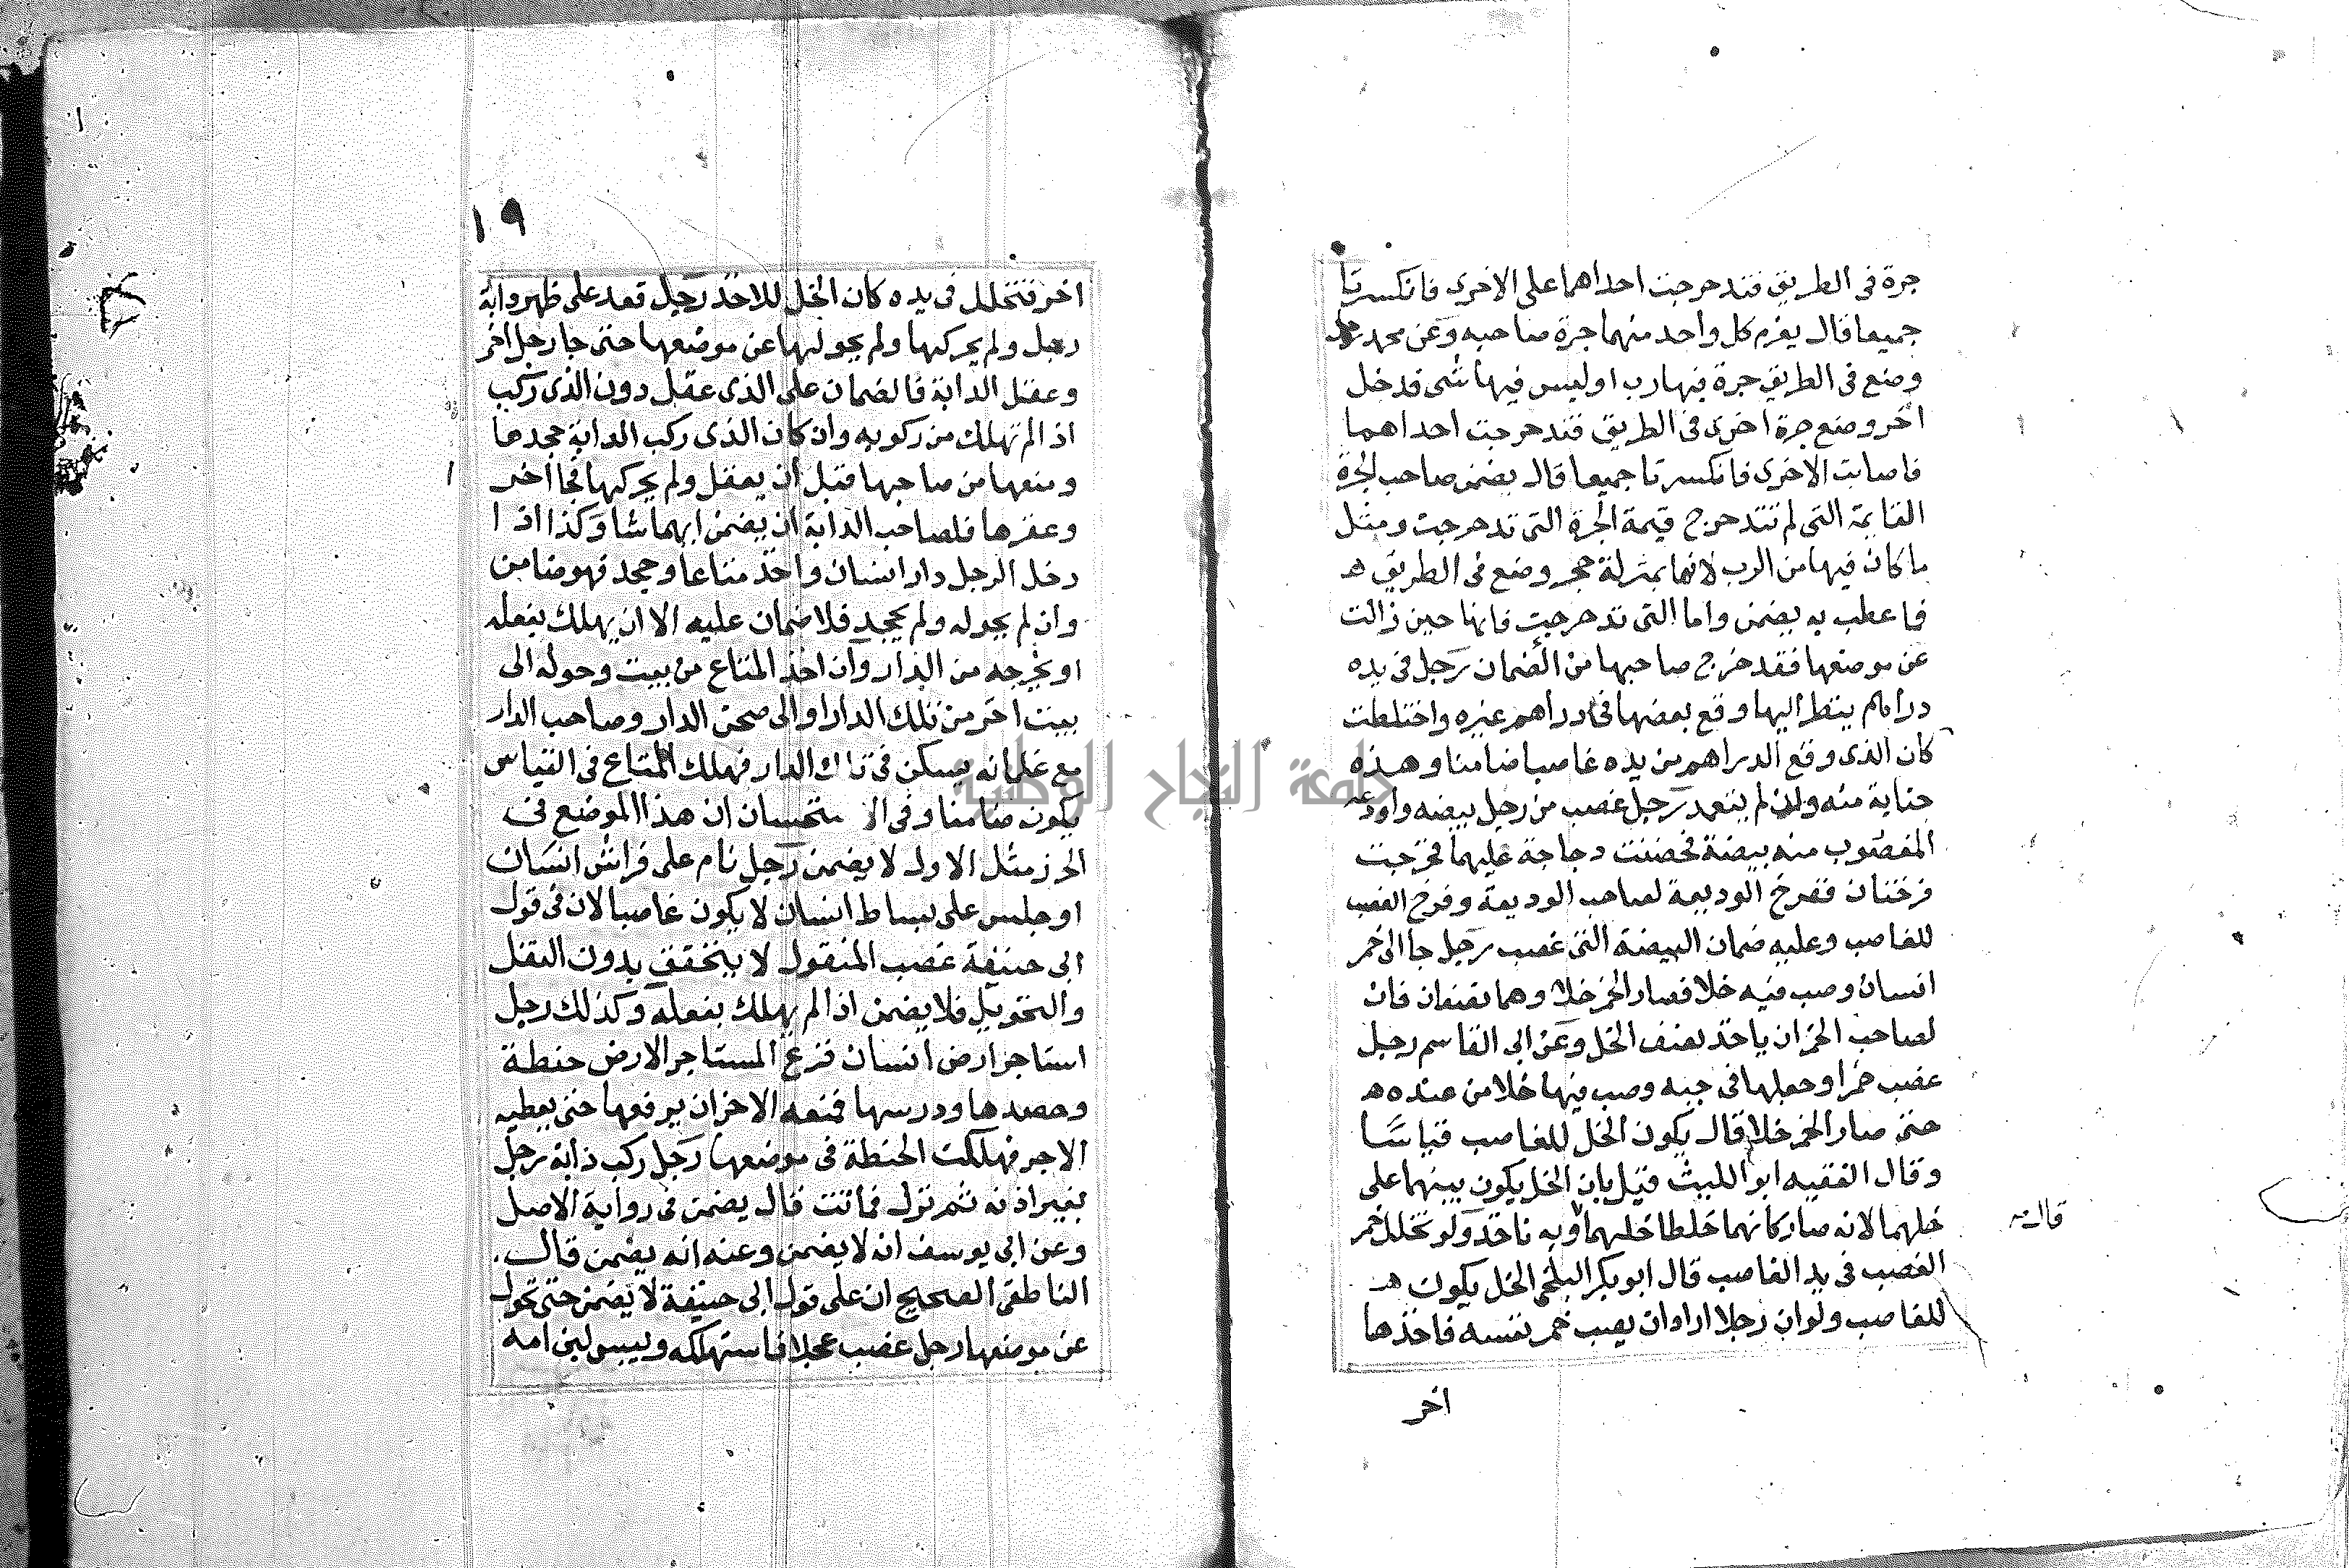 جرة فى الطريق فتدحرجت احداهما على الاخرى فانكسرتا
جميعا قال يغرم كل واحد منهما جرة صاحبه وعن محمد رجل
وضع فى الطريق جرة فيها رب او ليس فيها شى فدخل
اخر وضع جرة اخرى فى الطريق فتدحرجت احداهما
فاصابت الاخرى فانكسرتا جميعا قال يضمن صاحب الجرة
القايمة التى لم تتدحرج قيمة الجرة التى تدحرجت ومثل
ما كان فيها من الرب لانها بمنزلة حجر وضع فى الطريق
فما عطب به يضمن واما التى تدحرجت فانها حين زالت
عن موضعها فقد خرج صاحبها من الضمان رجل فى يده
دراهم ينظر اليها وقع بعضها فى دراهم غيره واختلطت
كان الذى وقع الدراهم من يده غاصبا ضامنا وهذه
جناية منه وان لم يتعمد رجل غصب من رجل بيضه واودعه
المغصوب منه بيضة فحضنت دجاجة عليهما فخرجت
فرختان ففرخ الوديعة لصاحب الوديعة وفرخ الغصب
للغاصب وعليه ضمان البيضة التى غصب رجل جا الى خمر
انسان وصب فيه خلا فصار الخمر خلا وهما نصفان فان
لصاحب الخمر ان ياخذ نصف الخل وعن ابى القاسم رجل
غصب خمرا وجعلها فى جبه وصب فيها خلا من عنده
حتى صار الخمر خلا قال يكون الخل للغاصب قياسا
وقال الفقيه ابو الليث قيل بان الخل يكون بينهما على
خلهما لانه صار كانهما خلطا خليهما وبه ناخذ ولو تخلل خمر
قالت
الغصب فى يد الغاصب قال ابو بكر البلخى الخل يكون
للغاصب ولو ان رجلا اراد ان يصب خمر نفسه فاخذها
اخر
١٩
اخر فتخلل فى يده كان الخل للاخذ رجل قعد على ظهر دابة
رجل ولم يحركها ولم يحولها عن موضعها حتى جا رجل اخر
وعقل الدابة فالضمان على الذى عقل دون الذى ركب
اذا لم تهلك من ركوبه وان كان الذى ركب الدابة جحدها
ومنعها من صاحبها قبل ان يعقل ولم يحركها فجا اخر
وعقرها فلصاحب الدابة ان يضمن ايهما شا وكذا اذا
دخل الرجل دار انسان واخذ متاعا وجحد فهو ضامن
وان لم يحوله ولم يجحد فلا ضمان عليه الا ان يهلك بفعله
او يخرجه من الدار وان اخذ المتاع من بيت وحوله الى
بيت اخر من تلك الدار او الى صحن الدار وصاحب الدار
مع غلمانه يسكن فى تلك الدار فهلك المتاع فى القياس
يكون ضامنا وفى الاستحسان ان هذا الموضع فى
الحرز مثل الاول لا يضمن رجل نام على فراش انسان
او جلس على بساط انسان لا يكون غاصبا لان فى قول
ابى حنيفة غصب المنقول لا يتحقق بدون النقل
والتحويل فلا يضمن اذا لم يهلك بفعله وكذلك رجل
استاجر ارض انسان فزرع المستاجر الارض حنطة
وحصدها ودرسها فمنعه الاخر ان يرفعها حتى يعطيه
الاجر فهلكت الحنطة فى موضعها رجل ركب دابة رجل
بغير اذنه ثم نزل فماتت قال يضمن فى رواية الاصل
وعن ابى يوسف انه لا يضمن وعنه انه يضمن قال
الناطفى الصحيح ان على قول ابى حنيفة لا يضمن حتى تحول
عن موضعها رجل غصب عجلا فاستهلكه ويبس لبن امه
جامعة النجاح الوطنية